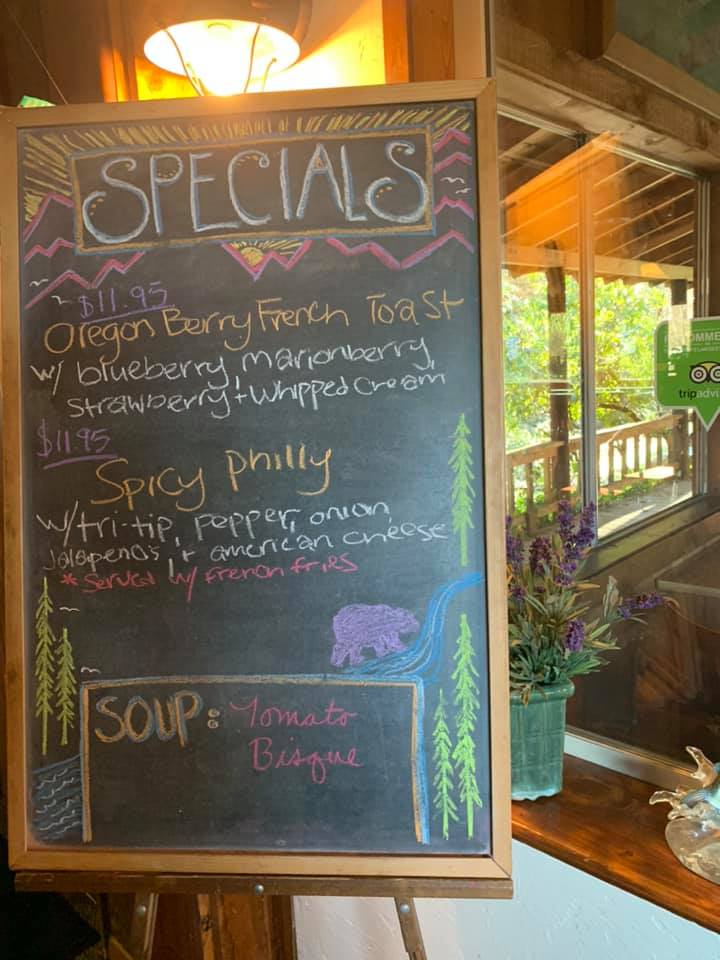 SPECIALS
$11.95
Oregon Berry French Toast
w/ blueberry, marionberry,
strawberry + whipped cream
$11.95
Spicy Philly
w/ tri-tip, pepper, onion,
Jalapeños, + american cheese
* Served w/ french fries
SOUP: Tomato
Bisque
tripadvi